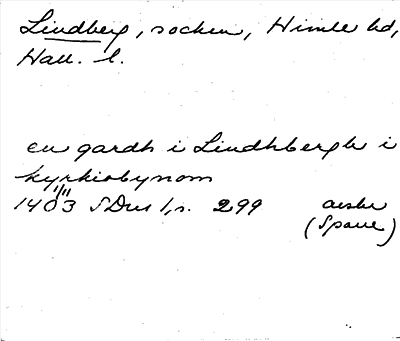 Lindberg, socken, Himle hd,
Hall. l.
en gardh i Lindhbergh i
kyrkiobynom
1/11
1403 SDns 1, s. 299 avskr
(Spare)